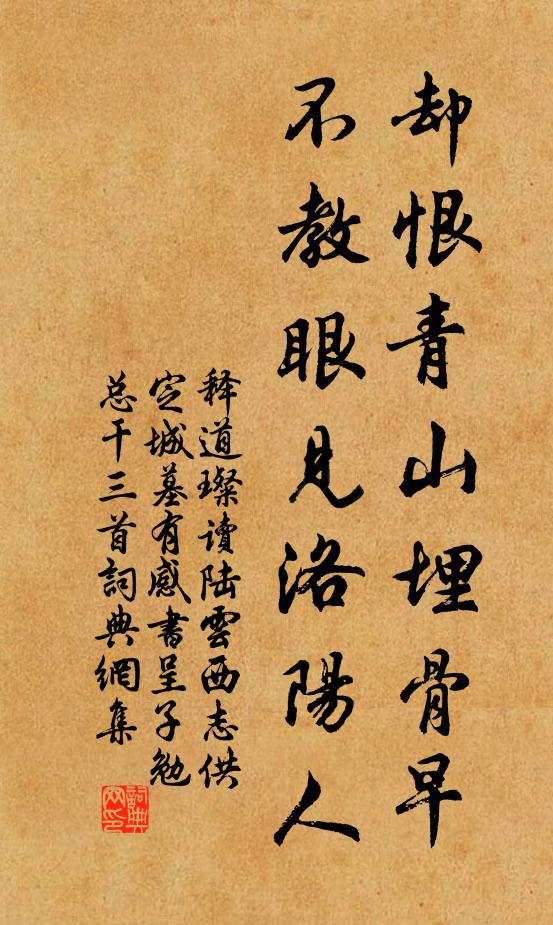 却恨青山埋骨早
不教眼见洛陽人
释道璨读陆雲西志供
定城墓有感書呈子勉
总干三首詞典網集
詞典網印